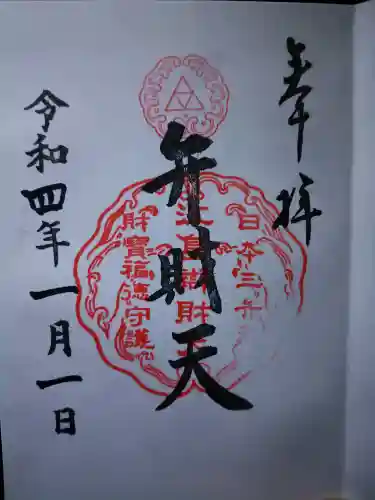 奉拝
日本三弁
江島弁財天
財寶福徳守護
弁財天
令和四年一月一日